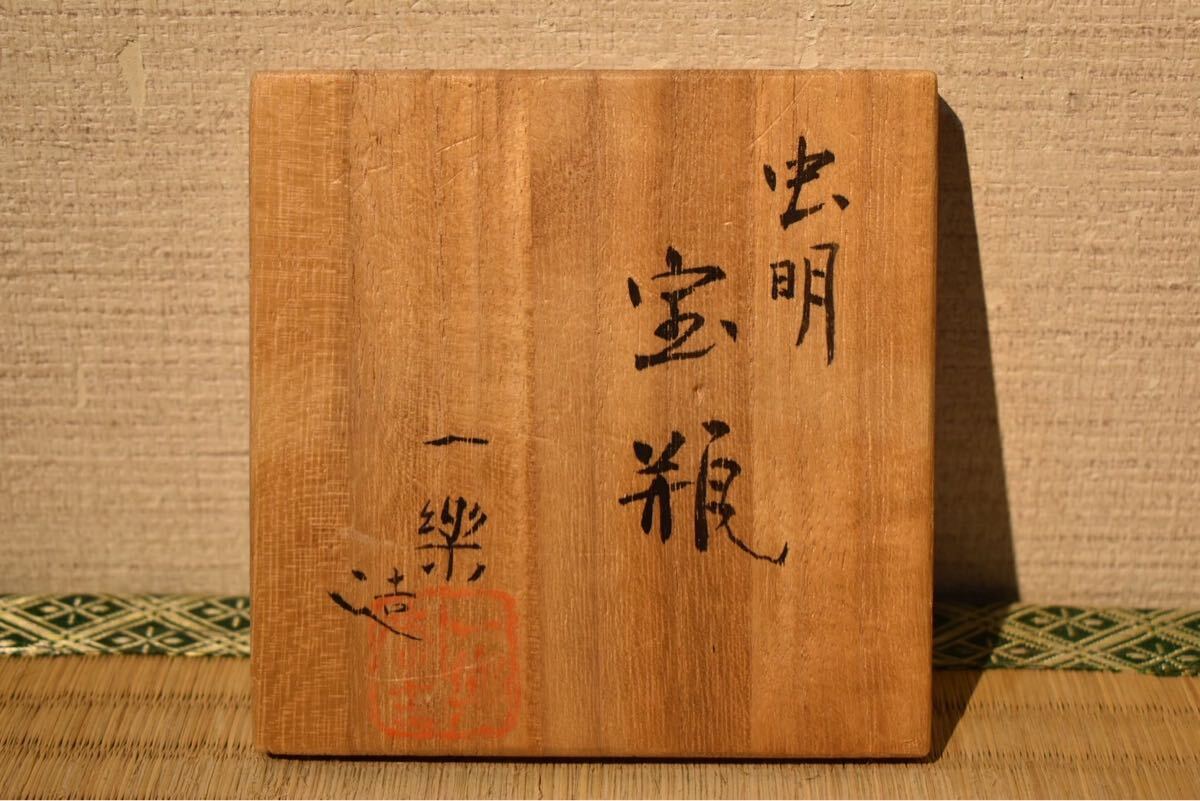 虫明
宝瓶
一楽
造